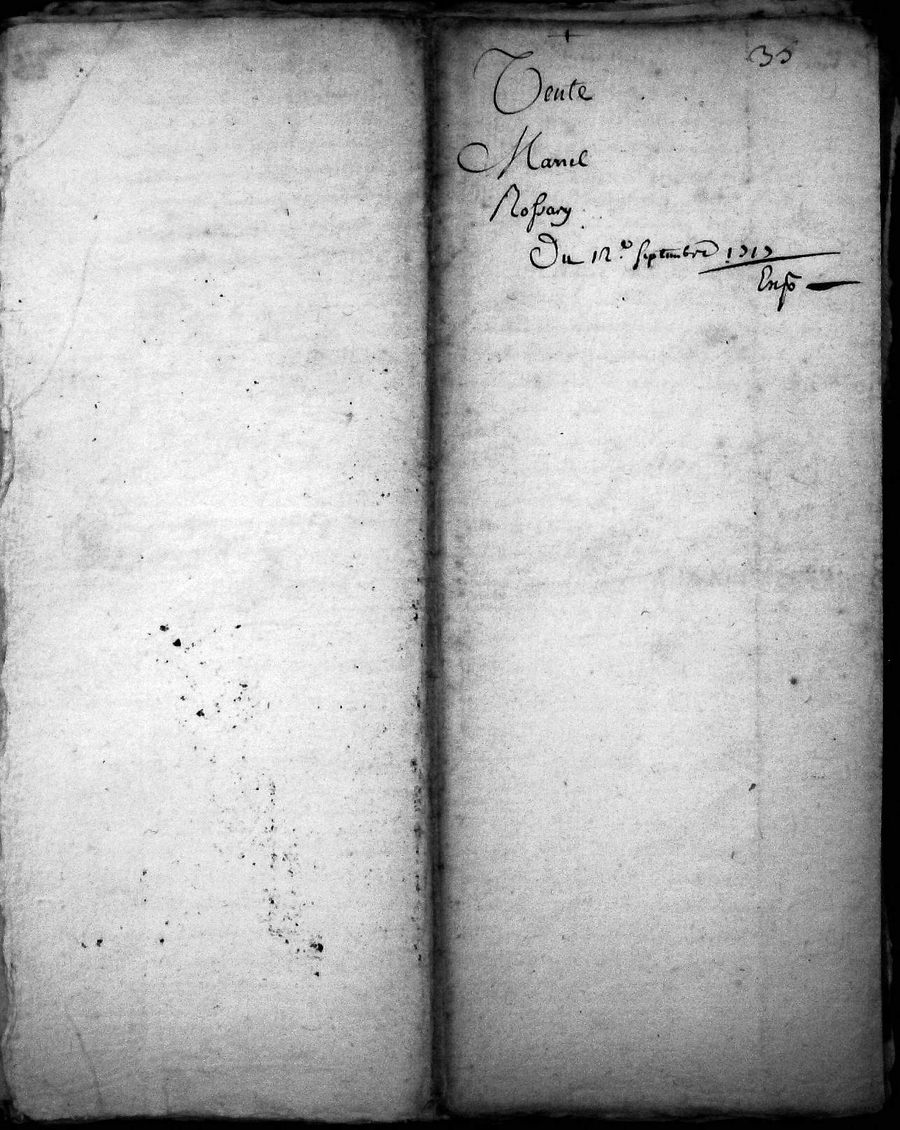 35
Vente
Marcel
Rossary
Du 12.e Septembre 1717